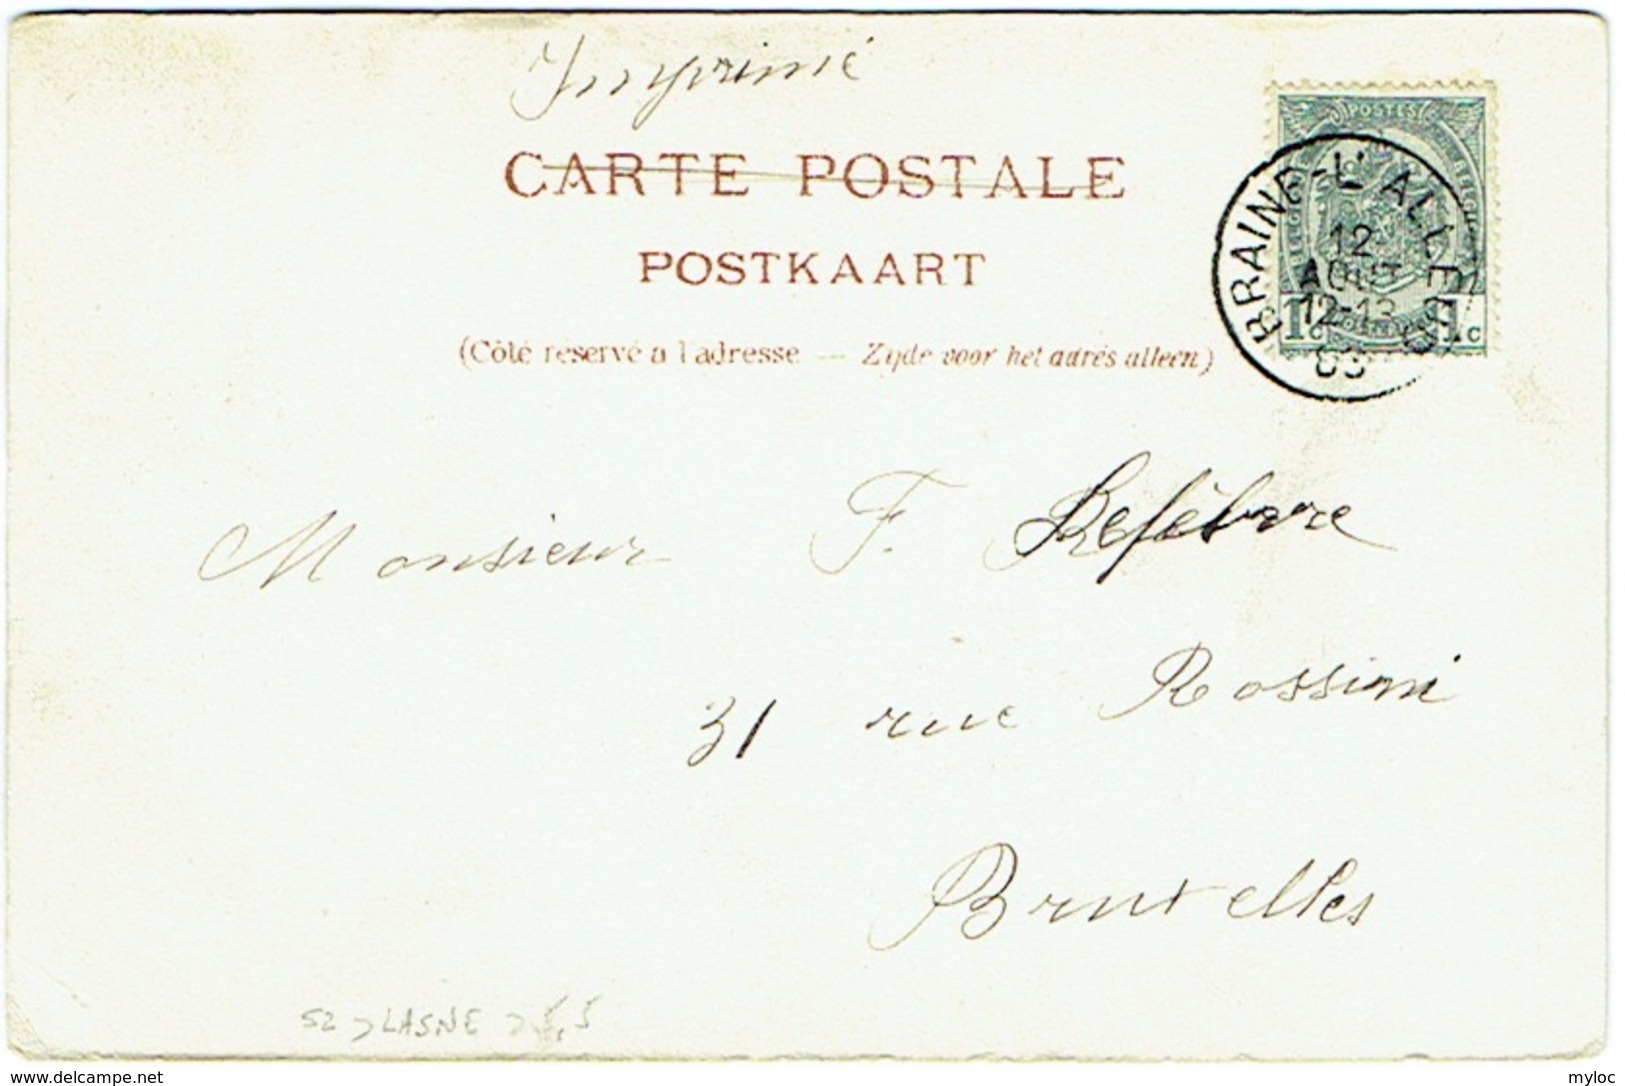 Imprimé
CARTE POSTALE
POSTKAART
(Côté réservé à l'adresse — Zijde voor het adres alleen)
POSTES
BRAINE-L'ALLEUD
12
AOUT
12-13
03
1c 1c
Monsieur F. Lefèbvre
31 rue Rossini
Bruxelles
52 > LASNE > 5,5
www.delcampe.net
myloc